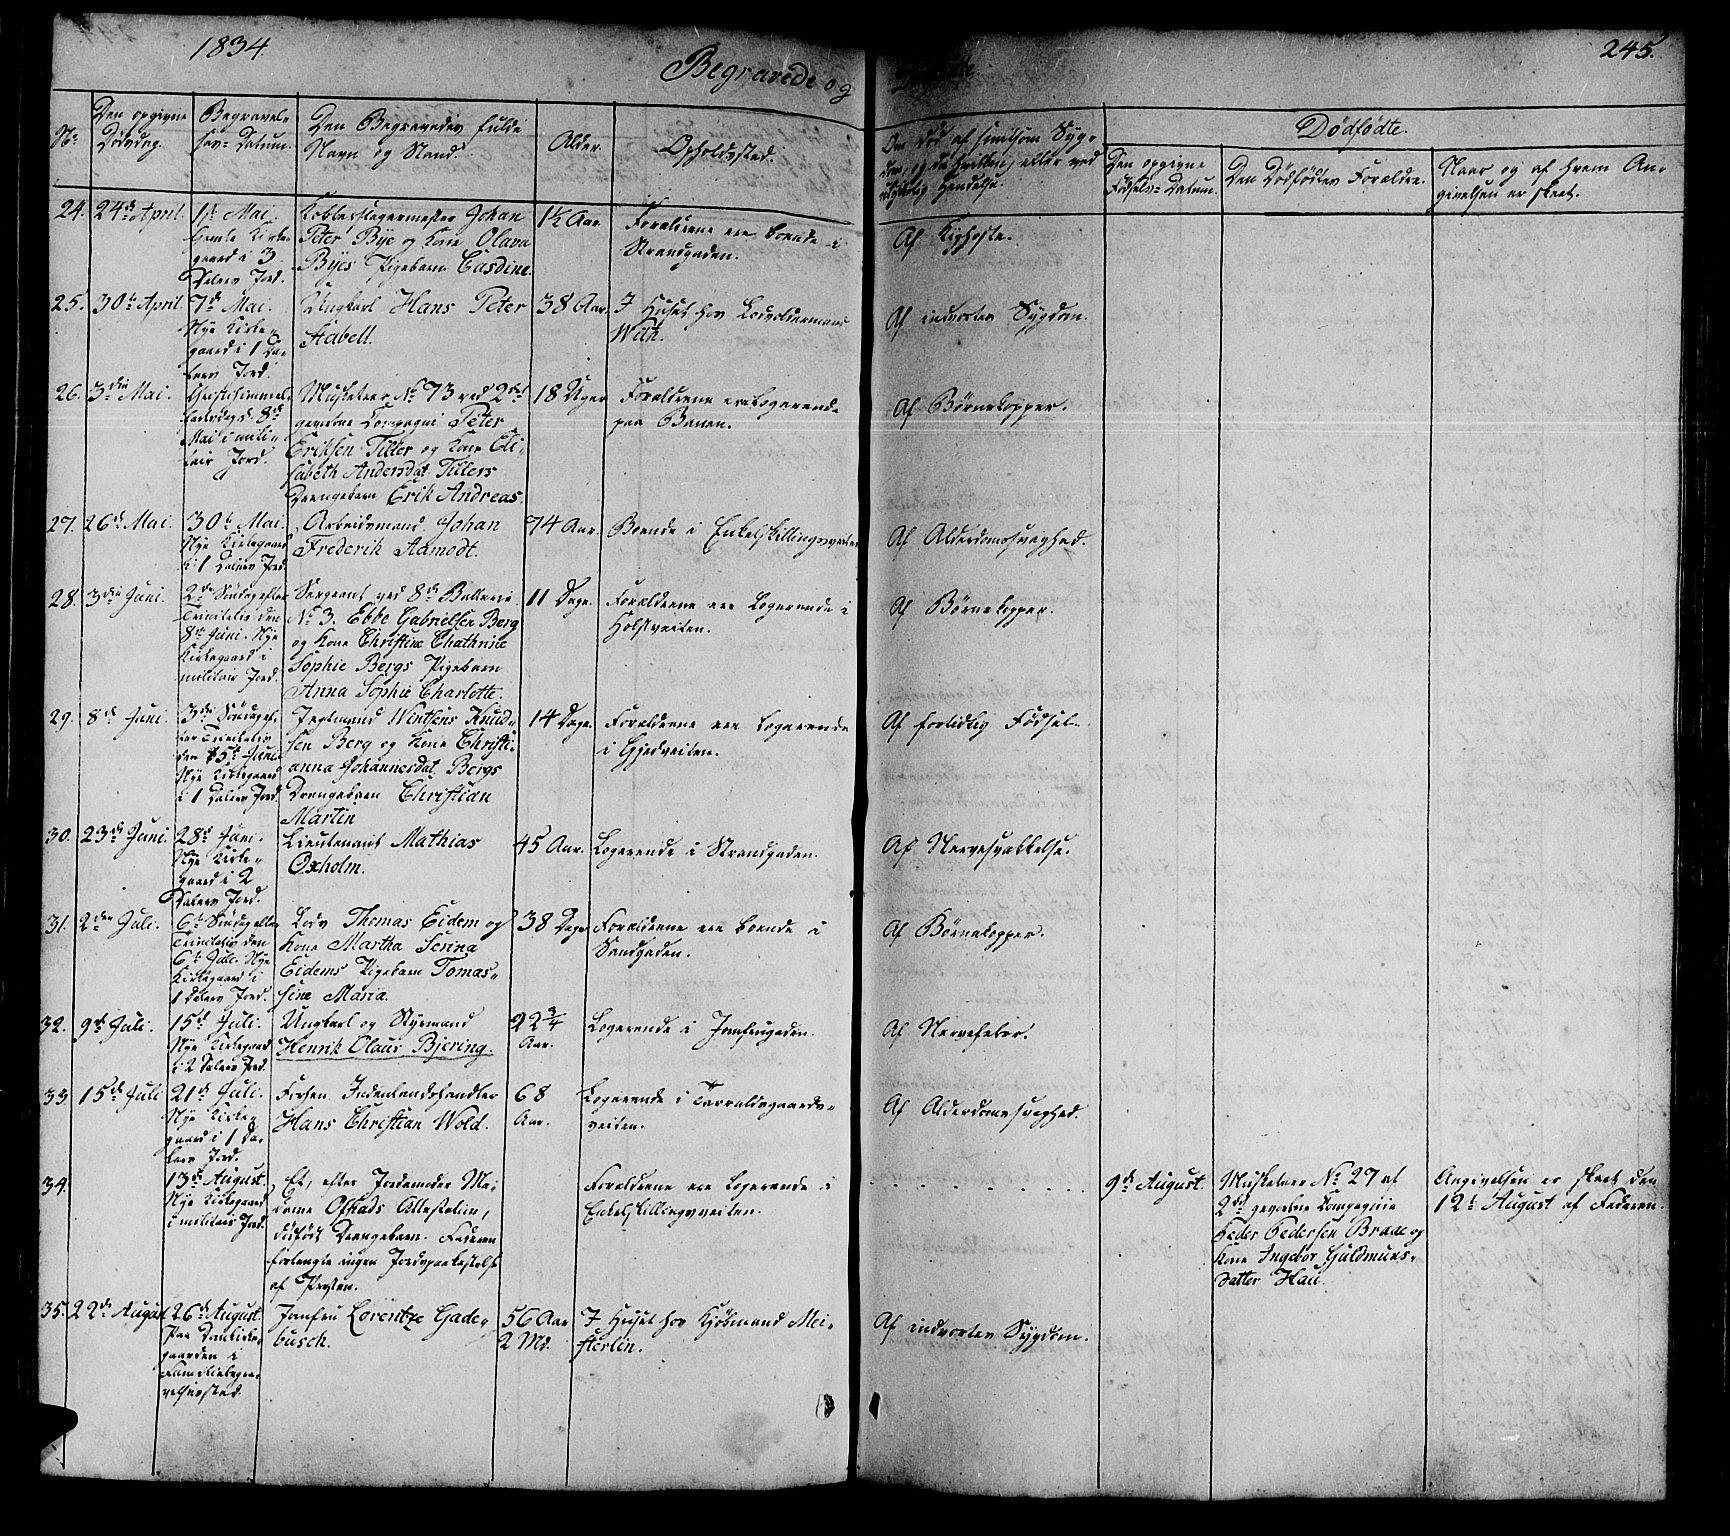 1834.
Begravede og
Dødfødte.
245.
No
Den opgivne
Dødsdag.
Begravel-
ses-Datum.
Den Begravedes fulde
Navn og Stand.
Alder.
Opholdssted.
Om død af smitsom Syg-
dom, og da hvilken, eller ved
ulykkelig Hendelse.
Dødfødte.
Den opgivne
Fødsels-Datum.
Den Dødfødtes Forældre.
Naar og af hvem An-
givelsen er skeet.
24.
24de April.
1ste Mai.
Gamle Kirke-
gaard i 3
Dalers Jord.
Kobberslagermester Johan
Peter Bye og Kone Olava
Byes Pigebarn Casdine.
1½ Aar.
Forældrene ere boende i
Strandgaden.
Af Kighoste.
25.
30te April.
7de Mai.
Nye Kirke-
gaard i 1 Da-
lers Jord.
Ungkarl Hans Peter
Aabell.
38 Aar.
I Huset hos
With.
Af indvortes Sygdom.
26.
3die Mai.
Christihimmel-
fartsdag d. 8de
Mai i mili-
tair Jord.
Musketeer No 73 ved 2det
gevorbne Compagni Peter
Eriksen Tiller og Kone Eli-
sabeth Andersdat. Tillers
Drengebarn Erik Andreas.
18 Uger
Forældrene ere logerende
paa Banen.
Af Børnekopper.
27.
26de Mai.
30te Mai.
Nye Kirkegaard
i 1 Dalers Jord.
Arbeidsmand Johan
Frederik Aamodt.
74 Aar.
Boende i Enkelskillingsveiten
Af Alderdomssvaghed.
28.
3die Juni.
2den Søndag efter
Trinitatis den
8de Juni. Nye
Kirkegaard i
militair Jord.
Sergeant ved 8de Batterie
No 3. Ebbe Gabrielsen Berg
og Kone Christine Chathrine
Sophie Bergs Pigebarn
Anna Sophie Charlotte.
11 Dage.
Forældrene ere logerende i
Holstveiten.
Af Børnekopper.
29.
8de Juni.
3die Søndag ef-
ter Trinitatis
den 15de Juni
Nye Kirkegaard
i 1 Dalers Jord
Jegtmand Wintsens Knud-
sen Berg og Kone Christi-
anna Johannesdat. Bergs
Drengebarn Christian
Martin
14 Dage.
Forældrene ere logerende
i Gjedveiten.
Af fortidlig Fødsel.
30.
23de Juni.
28de Juni.
Nye Kirke-
gaard i 2
Dalers Jord.
Lieutenant Mathias
Oxholm.
45 Aar.
Logerende i Strandgaden.
Af Nervesvækkelse.
31.
2den Juli.
6te Søndag efter
Trinitatis den
6te Juli. Nye
Kirkegaard i
1 Dalers Jord.
Lods Thomas Eidem og
Kone Martha Serina
Eidems Pigebarn Tomas-
sine Maria.
38 Dage
Forældrene ere boende i
Sandgaden.
Af Børnekopper.
32.
9de Juli.
15de Juli.
Nye Kirkegaard
i 2 Dalers Jord.
Ungkarl og Styrmand
Henrik Olaus Bjering.
22¾
Aar.
Logerende i Jomfrugaden.
Af Nervefeber.
33.
15de Juli
21de Juli.
Nye Kirke-
gaard i 1 Da-
lers Jord.
Forhen Indenlandshandler
Hans Christian Wold.
68
Aar.
Logerende i Tarraldsgaards-
veiten.
Af Alderdomssvaghed.
34.
13de August.
Nye Kirkegaard
i militair Jord.
Et, efter Jordemoder Ma-
dame Attestation,
dødfødt Drengebarn. Faderen
forlangte ingen Jordspaakastelse
af Præsten.
Forældrene ere logerende i
Enkelskillingsveiten.
9de August.
Musketeer No 27 af
2det gevorbne Compagnie
Peder Pedersen Braae og
Kone Ingebor Guldmuns-
datter Hau.
Angivelsen er skeet den
12te August af Faderen.
35.
22de August
26de August.
Paa Domkirke-
gaarden i
Familiebegra-
velsessted.
Jomfru Lorentze Gade-
busch.
56 Aar
2 Md.
I Huset hos Kjøbmand Mei-
sterlin.
Af indvortes Sygdom.